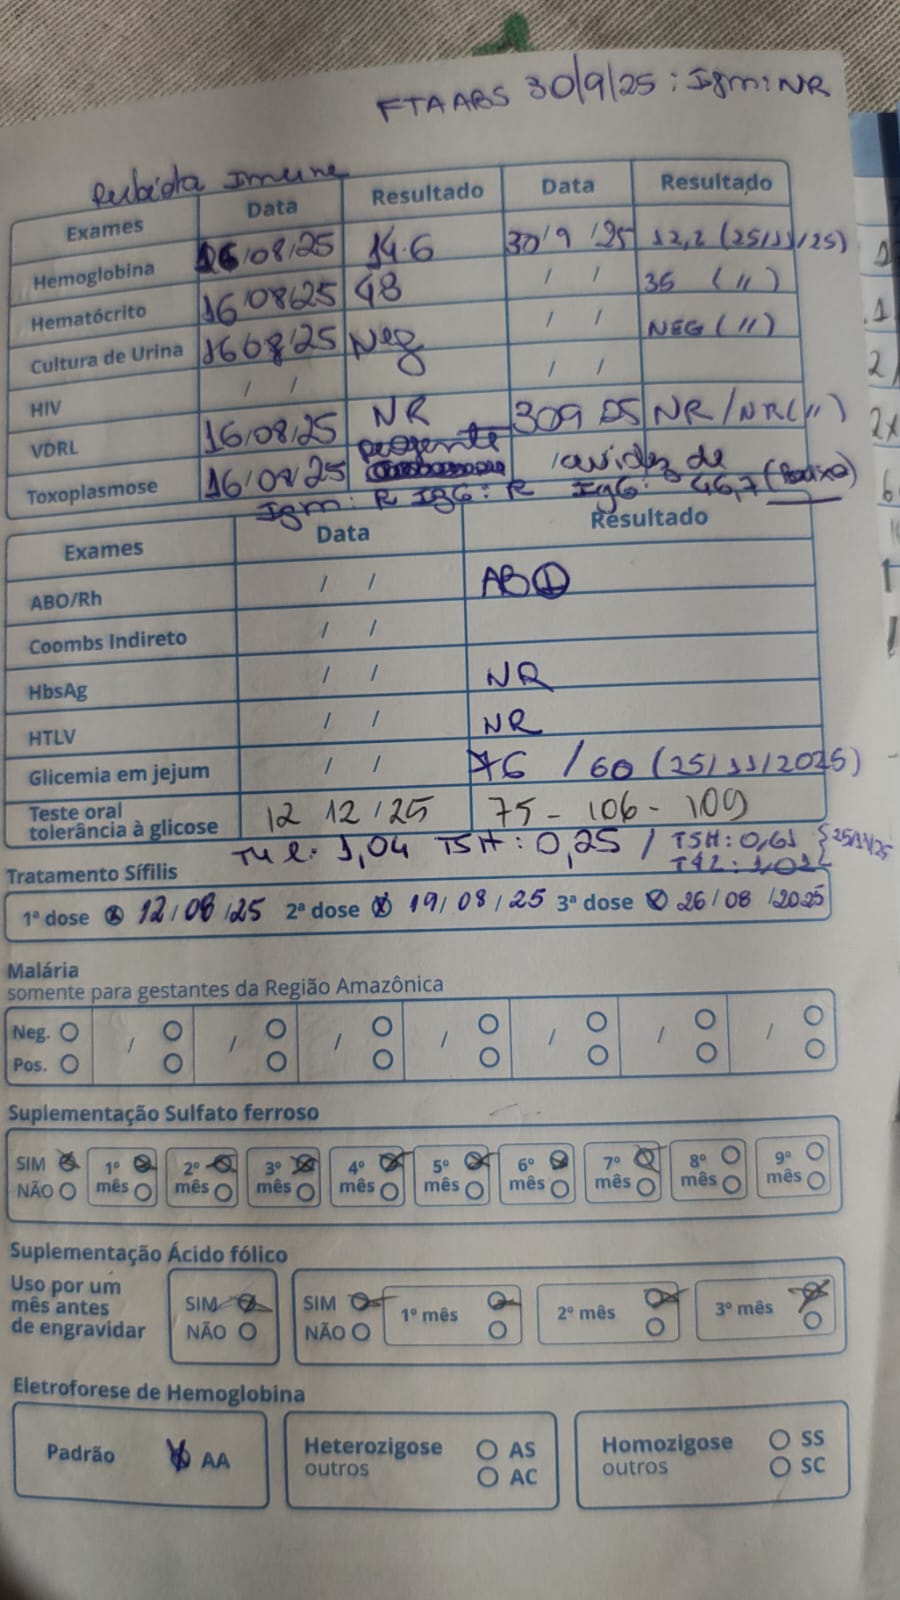 FTAABS 30/9/25 : Igm: NR
Rubéola Imune
Exames Data Resultado Data Resultado
Hemoglobina 16/08/25 14.6 30/9/25 12,2 (25/11/25)
Hematócrito 16/08/25 48 / / 35 (")
Cultura de Urina 16/08/25 Neg / / NEG (")
HIV / / / /
VDRL 16/08/25 NR 30 9 25 NR / NR (")
Toxoplasmose 16/08/25 reagente / avidez de
Igm: R IgG: R IgG: 46,7 (Baixa)
Exames Data Resultado
ABO/Rh / / AB
Coombs Indireto / /
HbsAg / / NR
HTLV / / NR
Glicemia em jejum / / 76 / 60 (25/11/2025)
Teste oral
tolerância à glicose 12 12 / 25 75 - 106 - 109
T4 L: 1,04 TSH: 0,25 / TSH: 0,61 { 25/11/25
T4L:
Tratamento Sífilis
1ª dose 12/08/25 2ª dose 19/08/25 3ª dose 26/08/2025
Malária
somente para gestantes da Região Amazônica
Neg. / / / / / / /
Pos.
Suplementação Sulfato ferroso
SIM 1º 2º 3º 4º 5º 6º 7º 8º 9º
NÃO mês mês mês mês mês mês mês mês mês
Suplementação Ácido fólico
Uso por um
mês antes
de engravidar
SIM
NÃO
SIM
NÃO
1º mês 2º mês 3º mês
Eletroforese de Hemoglobina
Padrão AA
Heterozigose AS
outros AC
Homozigose SS
outros SC